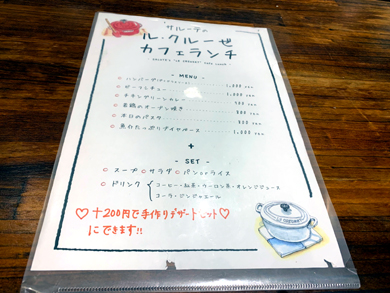 サルーテの
ル・クルーゼ
カフェランチ
MENU
ハンバーグ 1,000 yen
ビーフシチュー 1,000 yen
チキングリーンカレー 900 yen
のオーブン焼き 900 yen
本日のパスタ 800 yen
魚介たっぷり 1,000 yen
+
SET
スープ サラダ パン or ライス
ドリンク コーヒー・紅茶・ウーロン茶・オレンジジュース
コーラ・ジンジャエール
♡+200円で手作りデザートセット♡
にできます!!